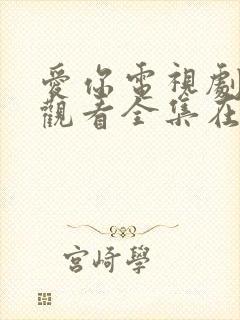 愛你電視劇
觀看全集在
宮崎學